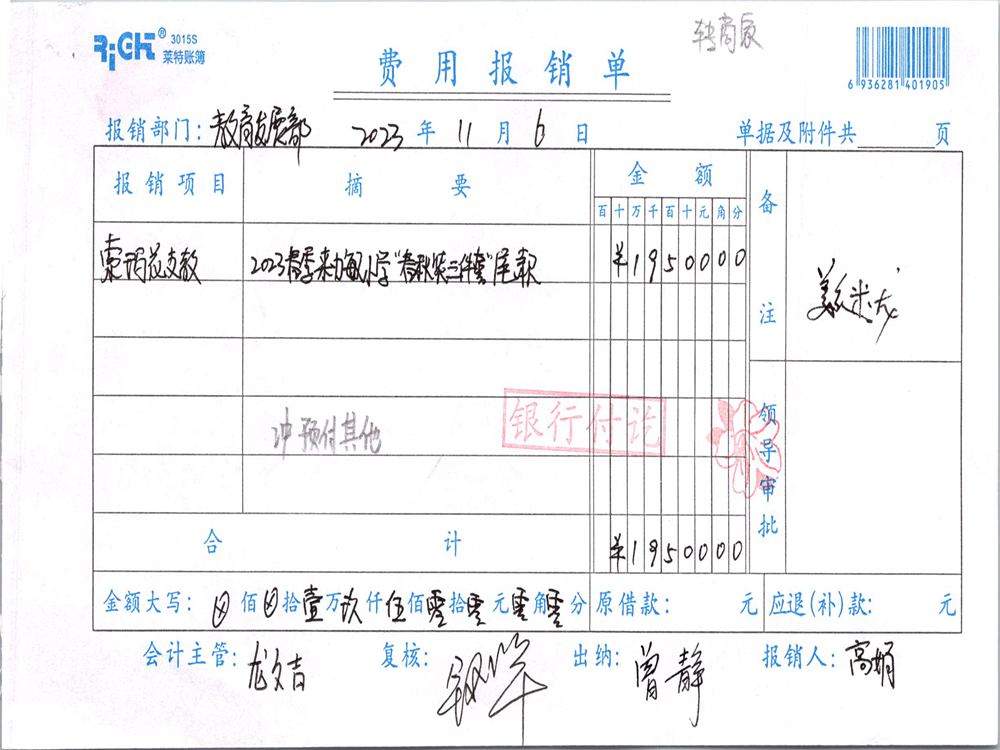 RiCH® 3015S
莱特账簿
转商家
费用报销单
6 936281 401905
报销部门：教育发展部 2023 年 11 月 6 日 单据及附件共 页
报销项目 摘要 金额 备注
百 十 万 千 百 十 元 角 分
2023春季 小学"春秋装三件套"尾款 ¥1950000
冲预付其他
银行付讫
领导审批
合计 ¥1950000
金额大写：⊗佰⊗拾壹万玖仟伍佰零拾零元零角零分 原借款： 元 应退(补)款： 元
会计主管：龙文吉 复核： 出纳：曾静 报销人：高娟